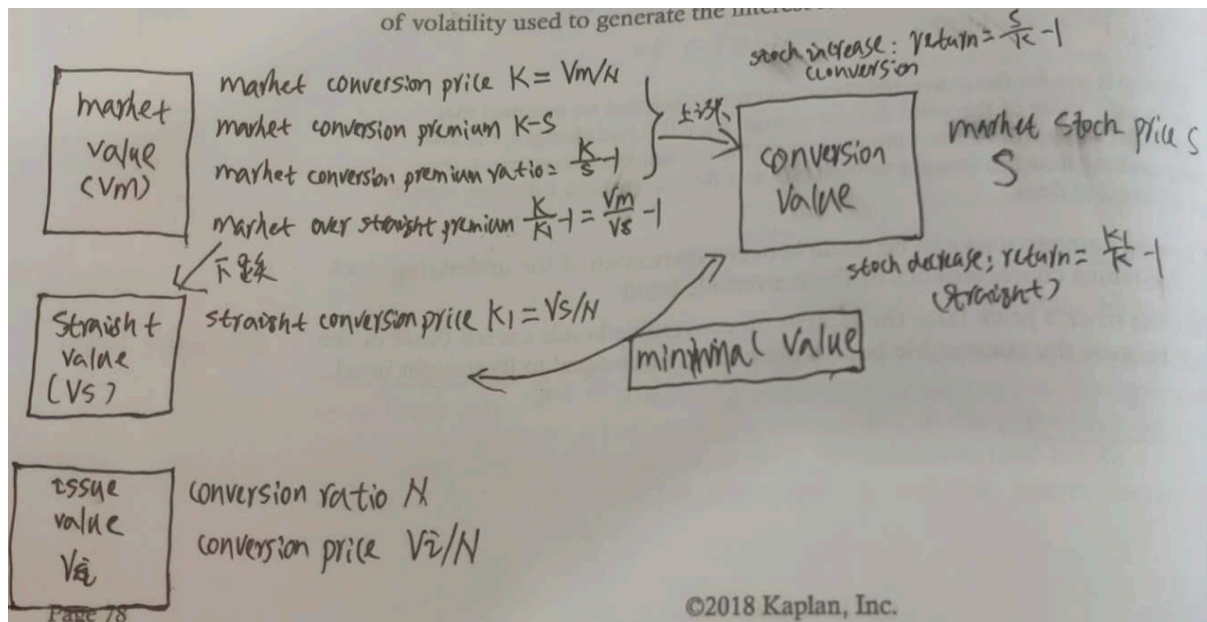 of volatility used to generate the
stock increase: return = S/K - 1
(conversion
market
value
(Vm)
market conversion price K = Vm/N
market conversion premium K-S
market conversion premium ratio = K/S - 1
market over straight premium K/K1 - 1 = Vm/Vs - 1
conversion
value
market stock price S
S
stock decrease: return = K1/K - 1
(straight)
不
Straight
value
(Vs)
straight conversion price K1 = Vs/N
minimal value
issue
value
Vi
conversion ratio N
conversion price Vi/N
Page 78
©2018 Kaplan, Inc.